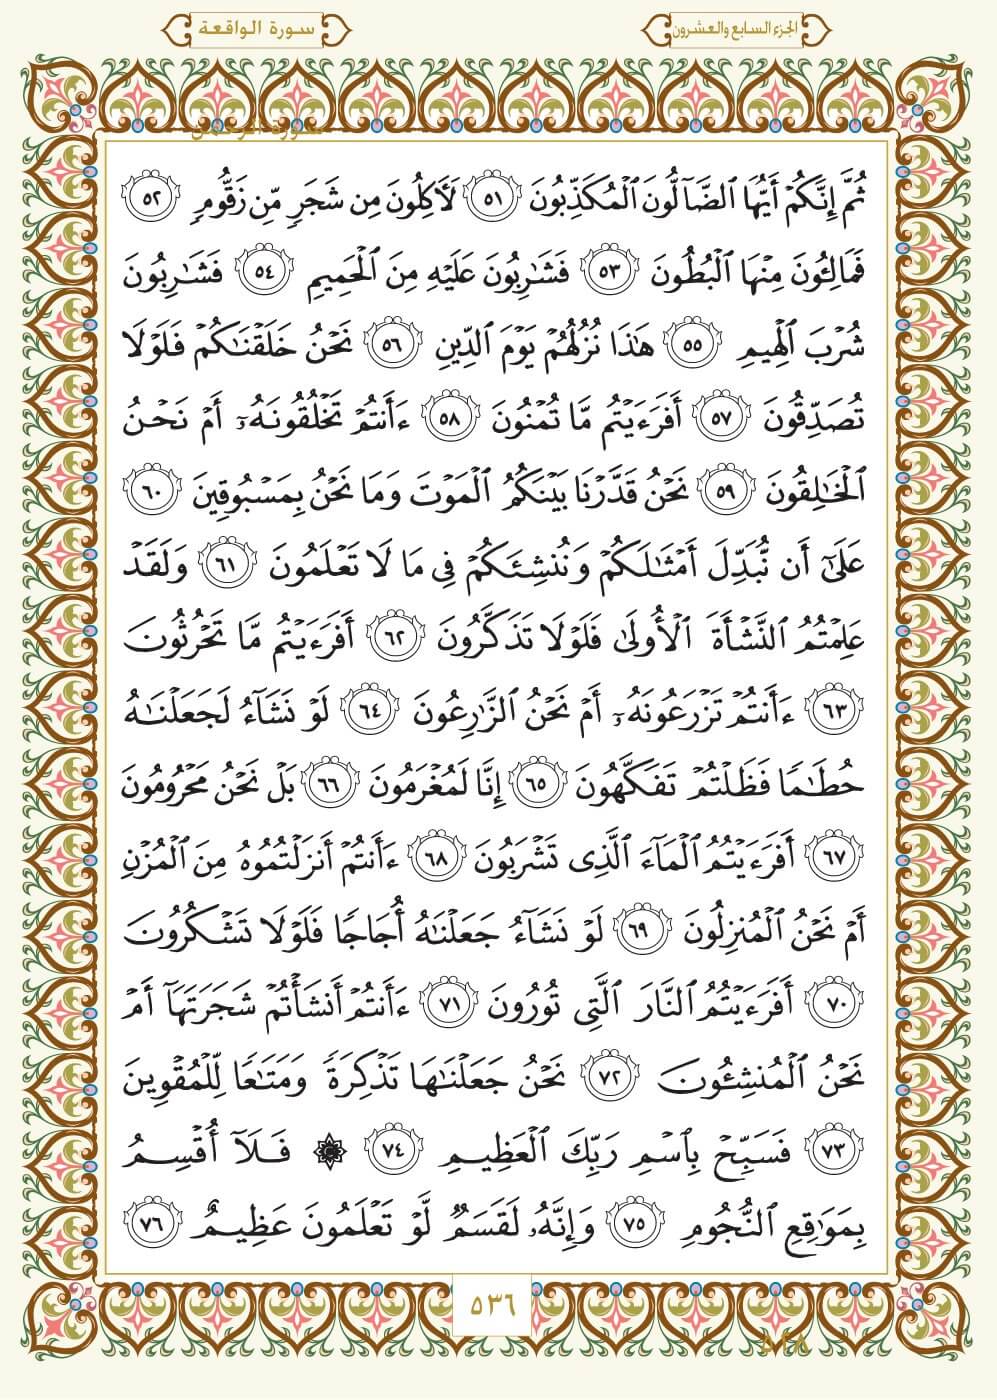 الجزء السابع والعشرون
سورة الواقعة
سورة الرحمن
ثُمَّ إِنَّكُمْ أَيُّهَا الضَّآلُّونَ الْمُكَذِّبُونَ ٥١ لَأَكِلُونَ مِن شَجَرٍ مِّن زَقُّومٍ ٥٢
فَمَالِئُونَ مِنْهَا الْبُطُونَ ٥٣ فَشَٰرِبُونَ عَلَيْهِ مِنَ الْحَمِيمِ ٥٤ فَشَٰرِبُونَ
شُرْبَ الْهِيمِ ٥٥ هَٰذَا نُزُلُهُمْ يَوْمَ الدِّينِ ٥٦ نَحْنُ خَلَقْنَٰكُمْ فَلَوْلَا
تُصَدِّقُونَ ٥٧ أَفَرَءَيْتُم مَّا تُمْنُونَ ٥٨ ءَأَنتُمْ تَخْلُقُونَهُۥٓ أَمْ نَحْنُ
الْخَٰلِقُونَ ٥٩ نَحْنُ قَدَّرْنَا بَيْنَكُمُ الْمَوْتَ وَمَا نَحْنُ بِمَسْبُوقِينَ ٦٠
عَلَىٰٓ أَن نُّبَدِّلَ أَمْثَٰلَكُمْ وَنُنشِئَكُمْ فِى مَا لَا تَعْلَمُونَ ٦١ وَلَقَدْ
عَلِمْتُمُ النَّشْأَةَ الْأُولَىٰ فَلَوْلَا تَذَكَّرُونَ ٦٢ أَفَرَءَيْتُم مَّا تَحْرُثُونَ
٦٣ ءَأَنتُمْ تَزْرَعُونَهُۥٓ أَمْ نَحْنُ الزَّٰرِعُونَ ٦٤ لَوْ نَشَآءُ لَجَعَلْنَٰهُ
حُطَٰمًا فَظَلْتُمْ تَفَكَّهُونَ ٦٥ إِنَّا لَمُغْرَمُونَ ٦٦ بَلْ نَحْنُ مَحْرُومُونَ
٦٧ أَفَرَءَيْتُمُ الْمَآءَ الَّذِى تَشْرَبُونَ ٦٨ ءَأَنتُمْ أَنزَلْتُمُوهُ مِنَ الْمُزْنِ
أَمْ نَحْنُ الْمُنزِلُونَ ٦٩ لَوْ نَشَآءُ جَعَلْنَٰهُ أُجَاجًا فَلَوْلَا تَشْكُرُونَ
٧٠ أَفَرَءَيْتُمُ النَّارَ الَّتِى تُورُونَ ٧١ ءَأَنتُمْ أَنشَأْتُمْ شَجَرَتَهَآ أَمْ
نَحْنُ الْمُنشِئُونَ ٧٢ نَحْنُ جَعَلْنَٰهَا تَذْكِرَةً وَمَتَٰعًا لِّلْمُقْوِينَ
٧٣ فَسَبِّحْ بِاسْمِ رَبِّكَ الْعَظِيمِ ٧٤ ۞ فَلَآ أُقْسِمُ
بِمَوَٰقِعِ النُّجُومِ ٧٥ وَإِنَّهُۥ لَقَسَمٌ لَّوْ تَعْلَمُونَ عَظِيمٌ ٧٦
٥٣٦